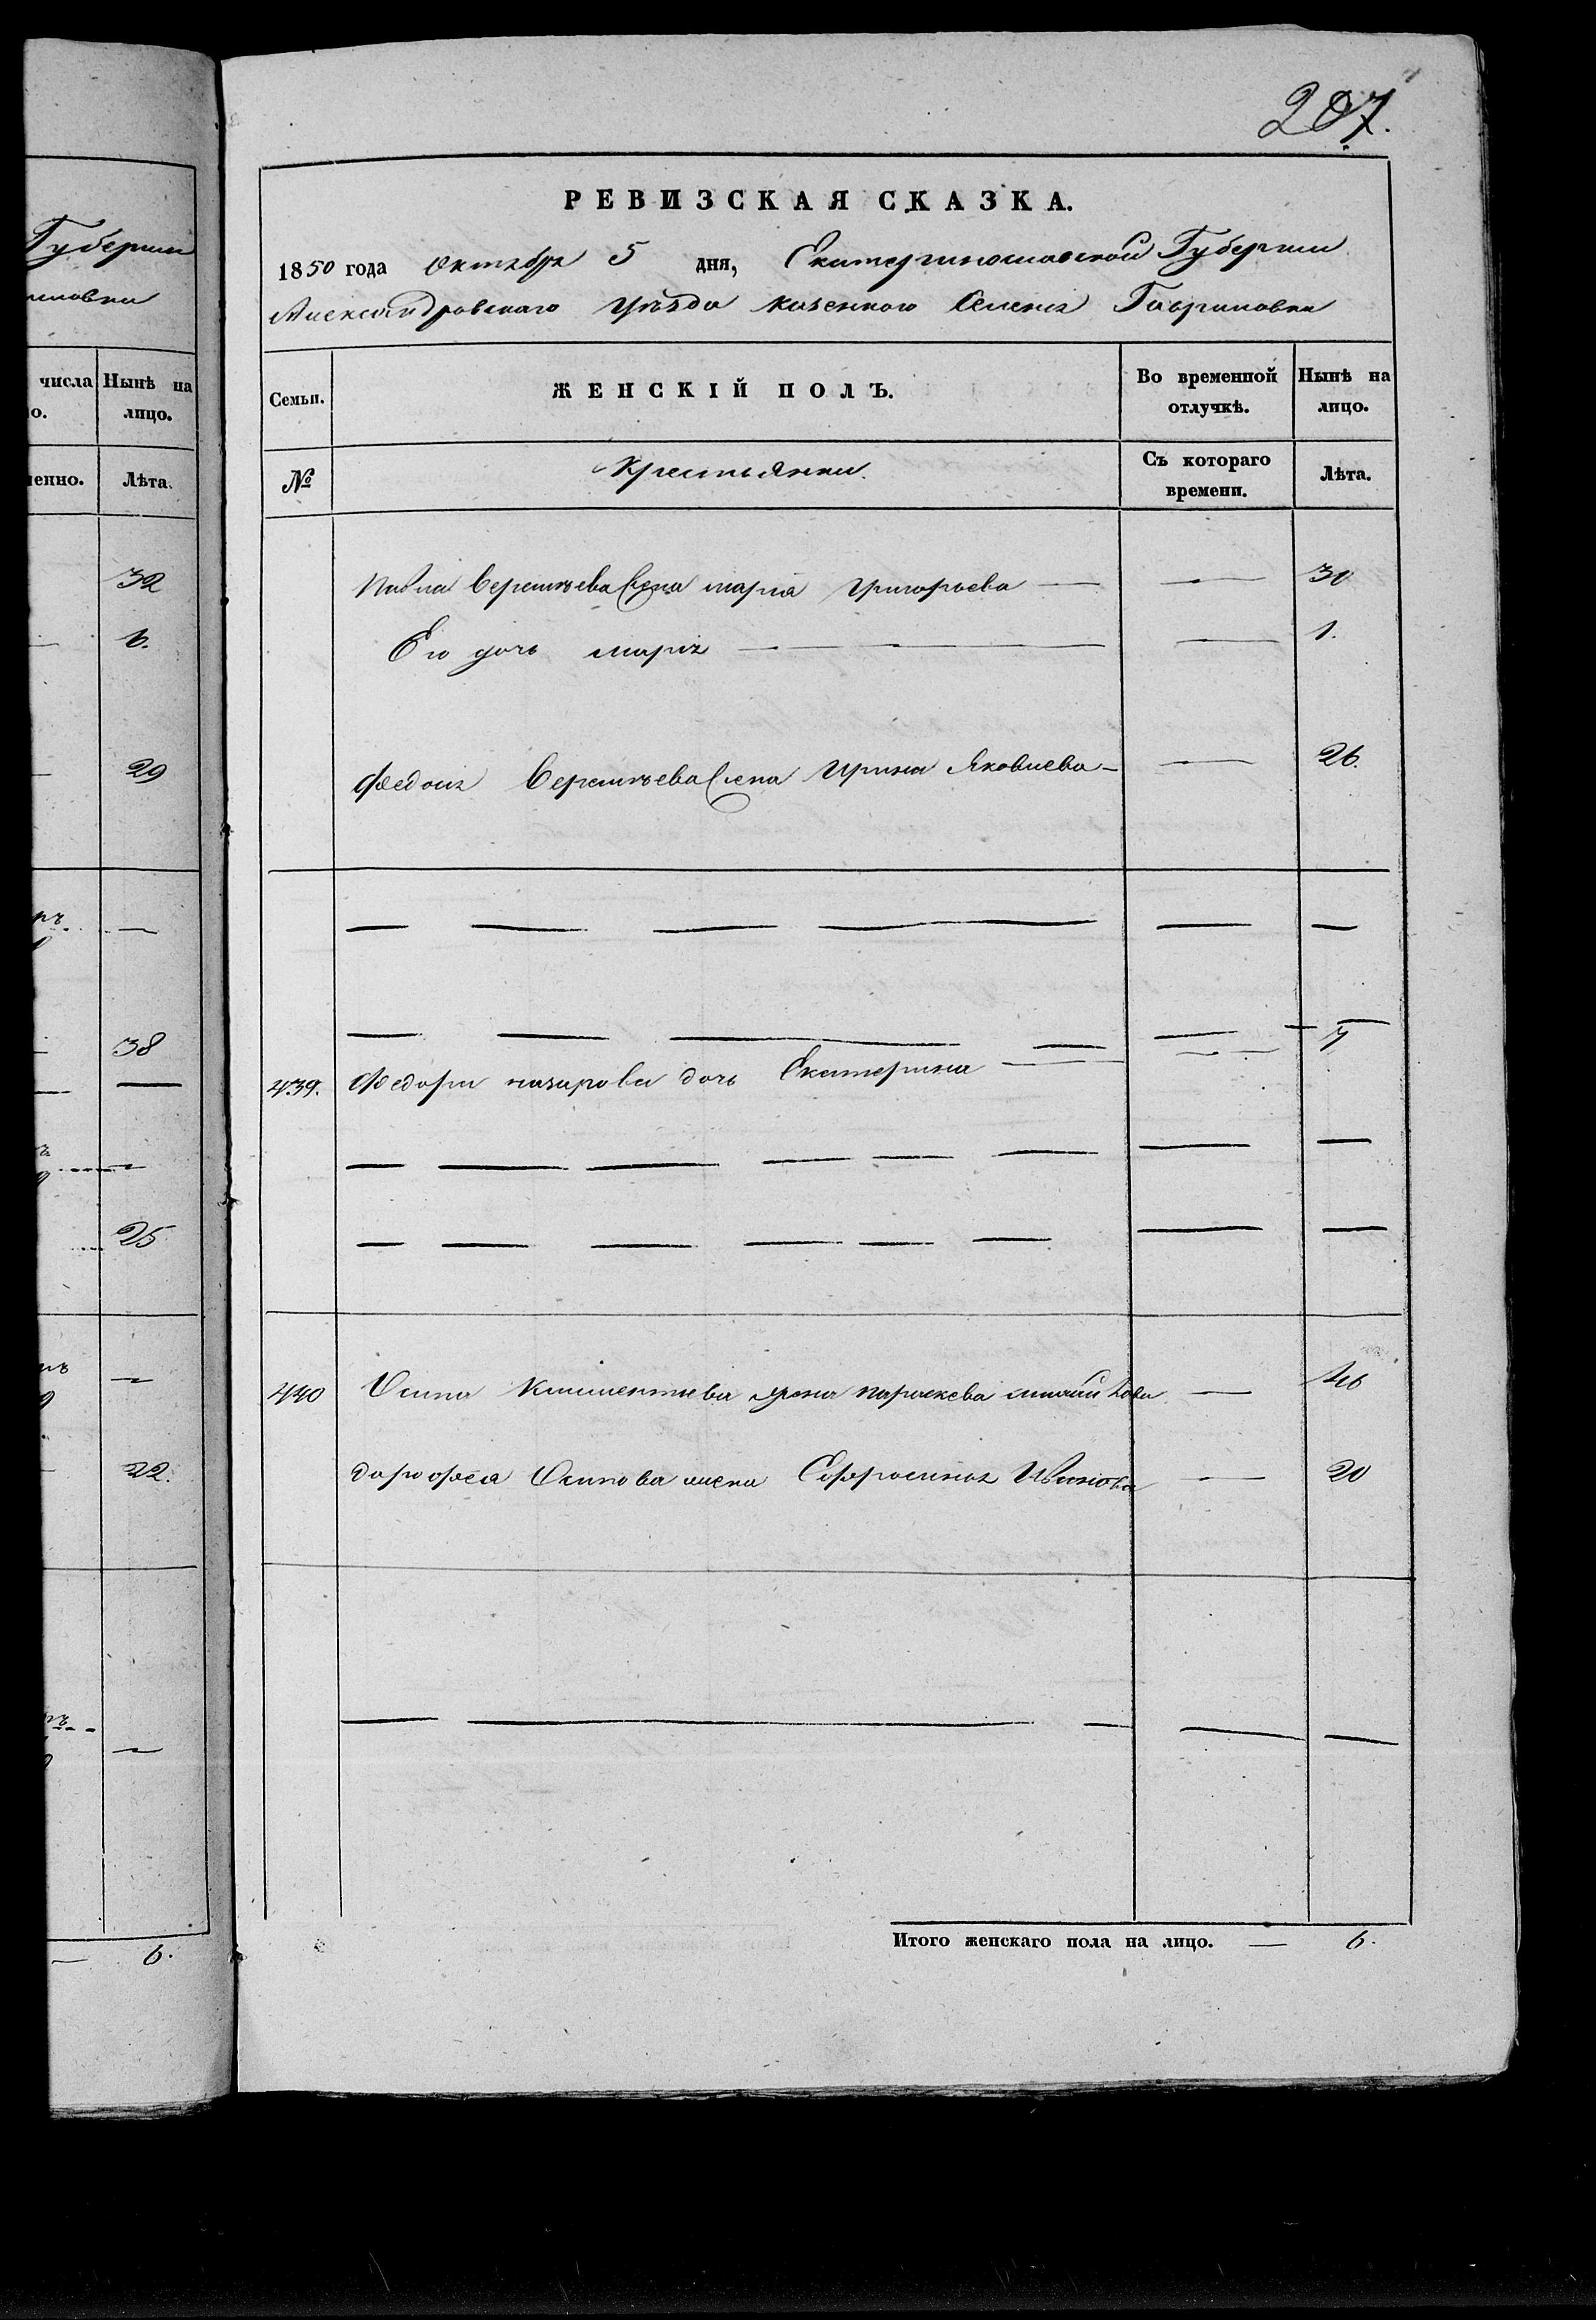 Губерніи
иловки
числа Нынѣ на
о. лицо.
менно. Лѣта.
32
6.
29
38
25
22.
6.
207.
РЕВИЗСКАЯ СКАЗКА.
1850 года Октября 5 дня, Екатеринославской Губерніи
Александровскаго Уѣзда казенного Селенія Гавриловки
Семьи. ЖЕНСКІЙ ПОЛЪ. Во временной отлучкѣ. Нынѣ на лицо.
№ Крестьянки. Съ котораго времени. Лѣта.
Павла Верентьева жена Марія Григорьева — — 30
Его дочь Марія — — 1.
Федота Верентьева жена Ирина Яковлева — — 26.
— — — — — —
— — — — — —
439. Федора Назарова дочь Екатерина — — 7
— — — — — — — —
— — — — — — — —
440 Осипа Климентьева жена Параскева — 46
Дорофея Осипова жена Ефросинья Иванова — 20
— — — — —
Итого женскаго пола на лицо. — 6.